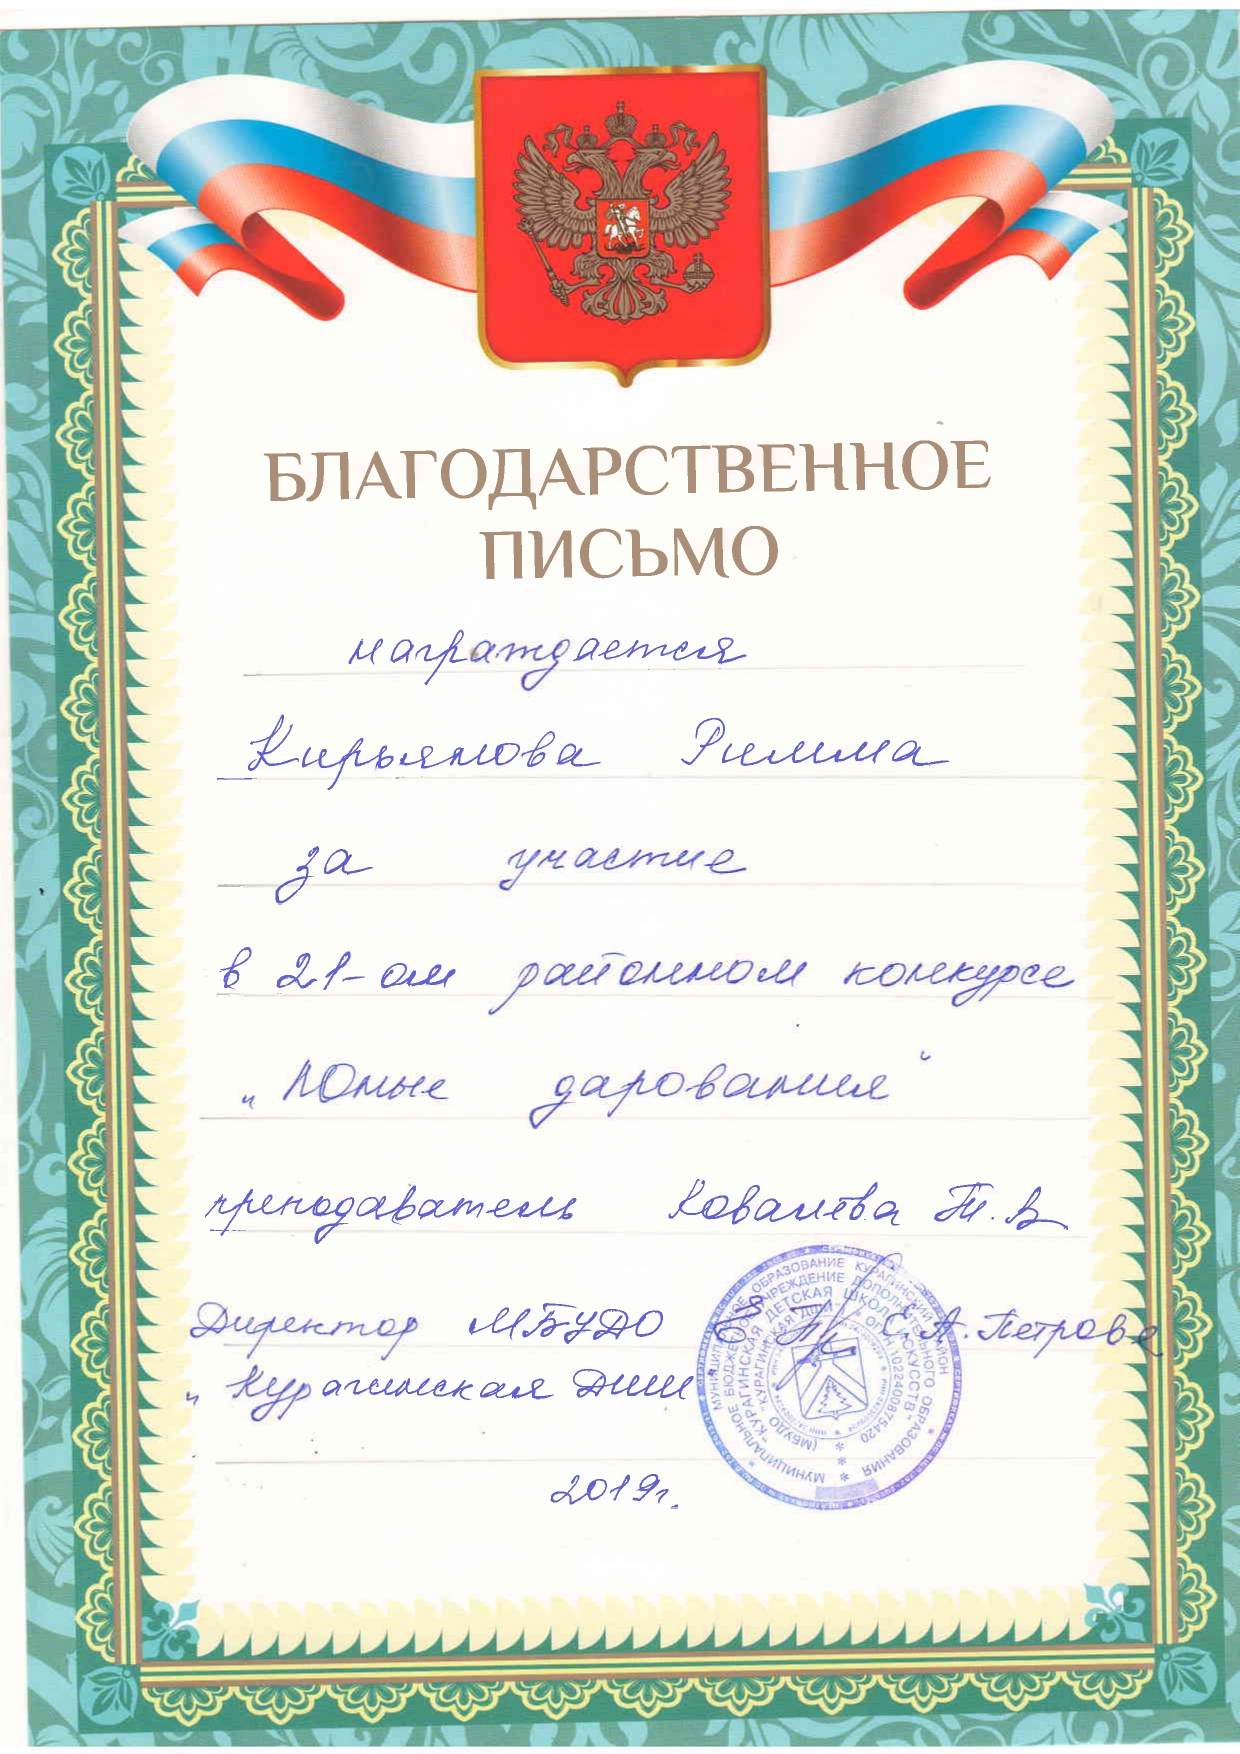 БЛАГОДАРСТВЕННОЕ
ПИСЬМО
награждается
Кирьянова Римма
за участие
в 21-ом районном конкурсе
„Юные дарования"
преподаватель Ковалева Т.В
Директор МБУДО С.А. Петрова
„Курагинская ДШИ"
2019г.
МУНИЦИПАЛЬНОЕ ОБРАЗОВАНИЕ КУРАГИНСКИЙ РАЙОН
МУНИЦИПАЛЬНОЕ БЮДЖЕТНОЕ УЧРЕЖДЕНИЕ ДОПОЛНИТЕЛЬНОГО ОБРАЗОВАНИЯ
"КУРАГИНСКАЯ ДЕТСКАЯ ШКОЛА ИСКУССТВ"
(МБУДО "КУРАГИНСКАЯ ДШИ") ОГРН 1022400875420